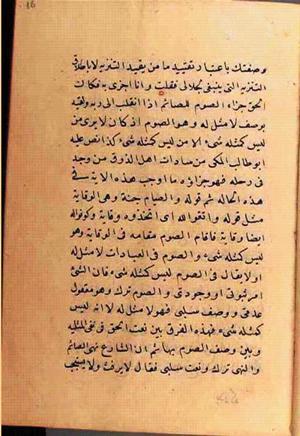 وصفتك باعتبار تقييد ما من تقييد التنزيه لا باطلاق
التنزيه الذى ينبغى لجلالى فقلت وانا اجزى به فكان
الحق جزاء الصوم للصائم اذا انقلب الى ربه ولقيه
بوصف لا مثل له وهو الصوم اذ كان لا يرى من
ليس كمثله شىء الا من ليس كمثله شىء كذا نص عليه
ابو طالب المكى من سادات اهل الذوق من وجد
فى رحله فهو جزاؤه ما اوجب هذه الاية فى
هذه الحالة ثم قوله والصيام جنة وهى الوقاية
مثل قوله واتقوا الله اى اتخذوه وقاية وكونوا له
ايضا وقاية فاقام الصوم مقامه فى الوقاية وهو
ليس كمثله شىء والصوم فى العبادات لا مثل له
ولا يقال فى الصوم ليس كمثله شىء فان الشىء
امر ثبوتى او وجودى والصوم ترك وهو معقول
عدمى ووصف سلبى فهو لا مثل له لا انه ليس
كمثله شىء فهذه الفرق بين نعت الحق فى نفى المثلية
وبين وصف الصوم بها ثم ان الشارع نهى الصائم
والنهى ترك ونعت سلبى فقال لا يرفث ولا يسخب